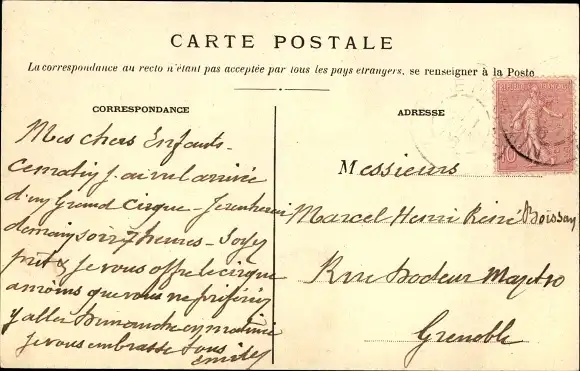 CARTE POSTALE
La correspondance au recto n'étant pas acceptée par tous les pays etrangers, se renseigner à la Poste
CORRESPONDANCE
Mes chers Enfants -
Ce matin j'ai vu l'arrivée
d'un Grand Cirque - Je rentrerai
demain soir 7 heures - Soyez
prêts je vous offre le cirque
a moins que vous ne préfériez
y aller Dimanche en matinée
Je vous embrasse tous
ADRESSE
Messieurs
Marcel Henri René Boissay
Rue
Grenoble
10